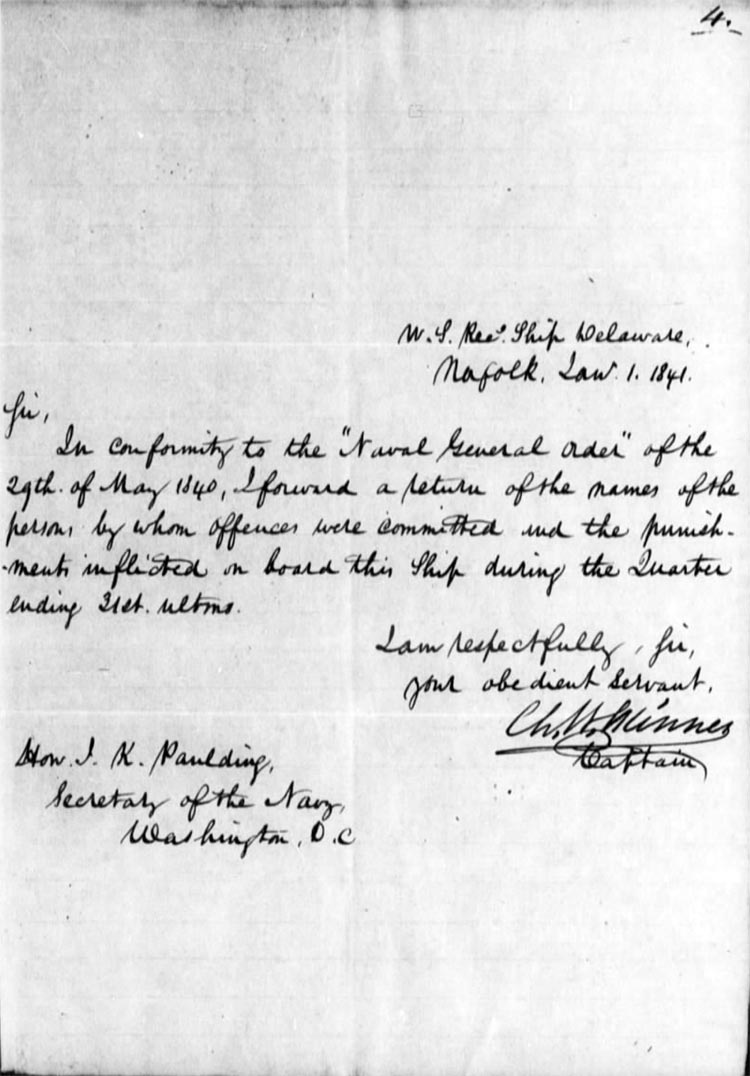 4.
U. S. Recg. Ship Delaware,
Norfolk, Jan. 1. 1841.
Sir,
In conformity to the "Naval General order" of the
29th. of May 1840, I forward a return of the names of the
persons by whom offences were committed and the punish-
-ments inflicted on board this Ship during the Quarter
ending 31st. ultmo.
I am respectfully, Sir,
your obedient Servant,
Ch. W. Skinner
Captain
Hon. J. K. Paulding,
Secretary of the Navy,
Washington, D. C